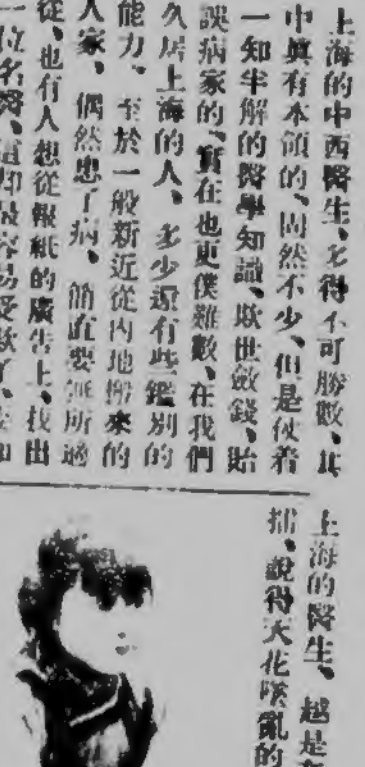 上海的中西醫生、多得不可勝數、其
中眞有本領的、固然不少、但是仗着
一知半解的醫學知識、欺世斂錢、貽
誤病家的、實在也更僕難數、在我們
久居上海的人、多少還有些鑑別的
能力、至於一般新近從內地搬來的
人家、偶然患了病、簡直要無所適
從、也有人想從報紙的廣告上、找出
一位名醫、這却最容易受欺了、
上海的醫生、越是
擂、說得天花墜亂的